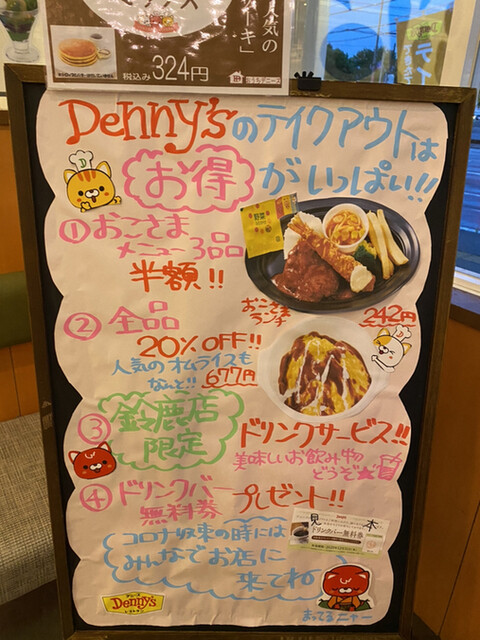 人気の
ケーキ」
税込み324円
おうちデニーズ
Denny'sのテイクアウトは
お得がいっぱい!!
①おこさま
メニュー3品
半額!!
おこさま
ランチ
242円
②全品
20%OFF!!
人気のオムライスも
なんと!!677円
③鈴鹿店
限定
ドリンクサービス!!
美味しいお飲み物
どうぞ★
④ドリンクバー
無料券プレゼント!!
見本
ドリンクバー無料券
コロナ収束の時には
みんなでお店に
来てね
Denny's
まってるニャー